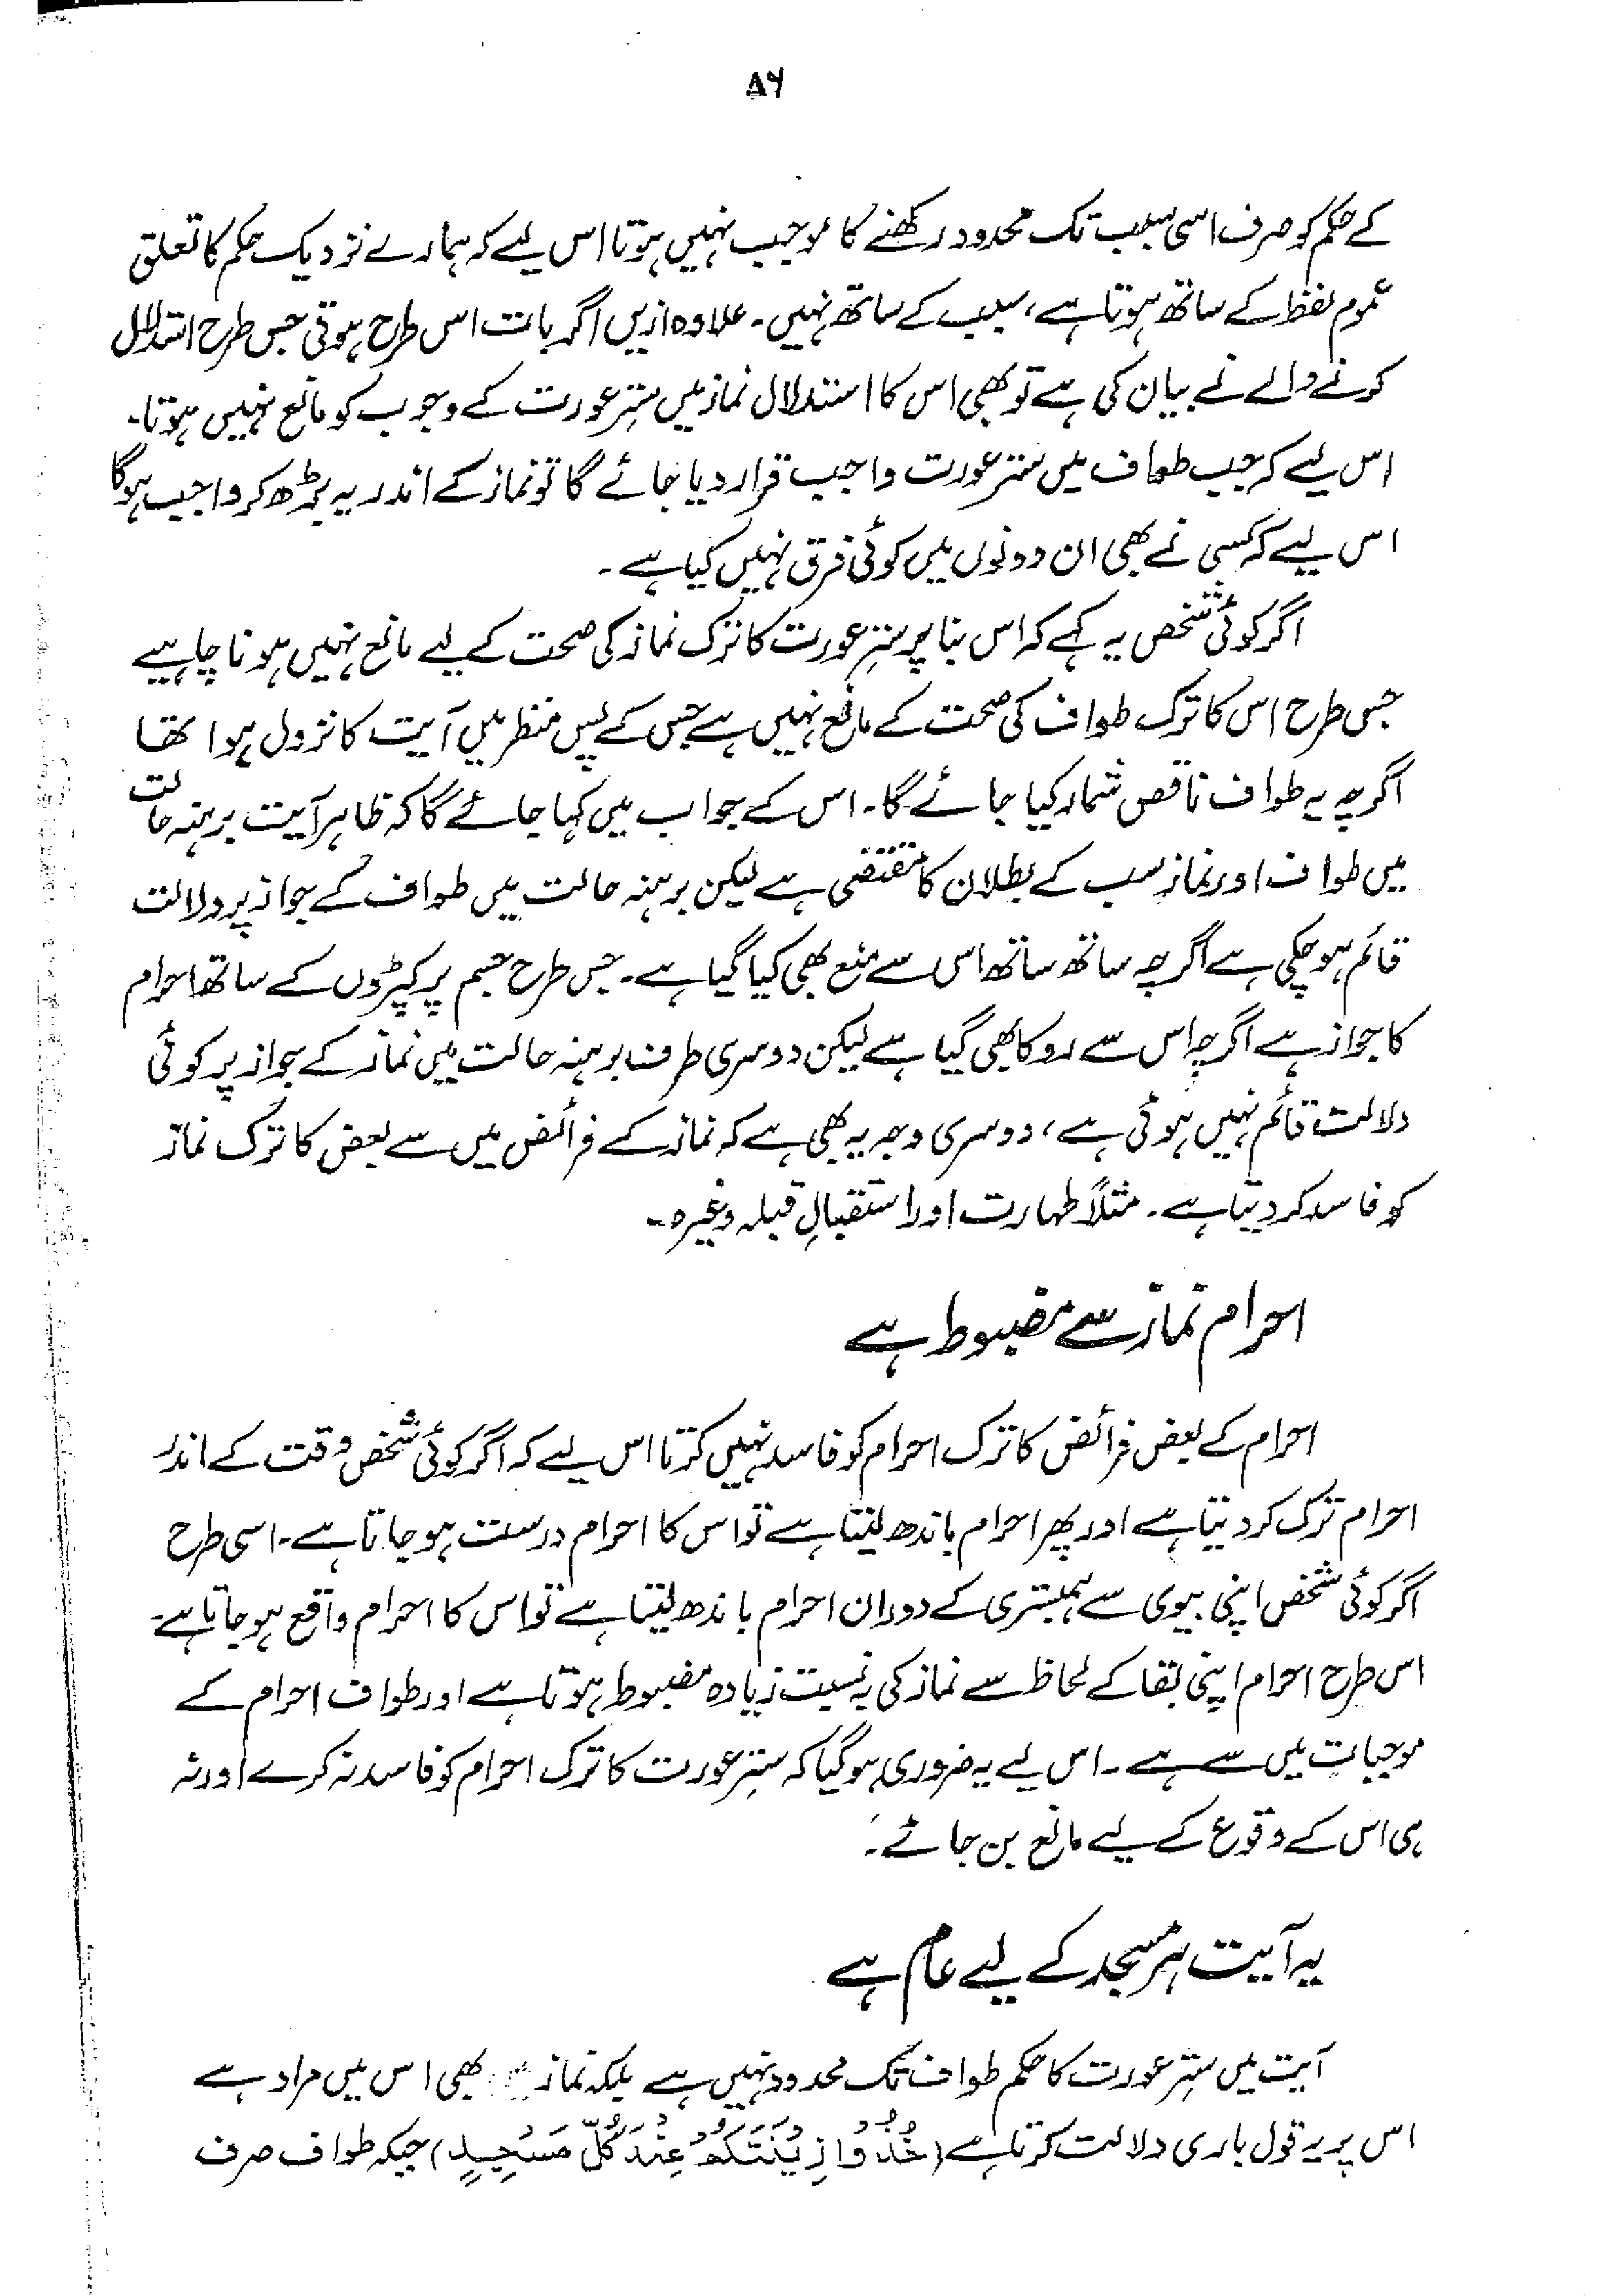 ۸۶
کے حکم کو صرف اسی سبب تک محدود رکھنے کا موجب نہیں ہوتا اس لیے کہ ہمارے نزدیک حکم کا تعلق
عموم لفظ کے ساتھ ہوتا ہے، سبب کے ساتھ نہیں۔ علاوہ ازیں اگر بات اس طرح ہوتی جس طرح استدلال
کرنے والے نے بیان کی ہے تو بھی اس کا استدلال نماز میں سترِ عورت کے وجوب کو مانع نہیں ہوتا۔
اس لیے کہ جب طواف میں ستر عورت واجب قرار دیا جائے گا تو نماز کے اندر یہ بڑھ کر واجب ہوگا
اس لیے کہ کسی نے بھی ان دونوں میں کوئی فرق نہیں کیا ہے۔
اگر کوئی شخص یہ کہے کہ اس بنا پر سترِ عورت کا ترک نماز کی صحت کے لیے مانع نہیں ہونا چاہیے
جس طرح اس کا ترک طواف کی صحت کے مانع نہیں ہے جس کے پس منظر میں آیت کا نزول ہوا تھا
اگرچہ یہ طواف ناقص شمار کیا جائے گا۔ اس کے جواب میں کہا جائے گا کہ ظاہر آیت برہنہ حالت
میں طواف اور نماز سب کے بطلان کا مقتضی ہے لیکن برہنہ حالت میں طواف کے جواز پر دلالت
قائم ہو چکی ہے اگرچہ ساتھ ساتھ اس سے منع بھی کیا گیا ہے۔ جس طرح جسم پر کپڑوں کے ساتھ احرام
کا جواز ہے اگرچہ اس سے روکا بھی گیا ہے لیکن دوسری طرف برہنہ حالت میں نماز کے جواز پر کوئی
دلالت قائم نہیں ہوئی ہے، دوسری وجہ یہ بھی ہے کہ نماز کے فرائض میں سے بعض کا ترک نماز
کو فاسد کر دیتا ہے۔ مثلاً طہارت اور استقبالِ قبلہ وغیرہ۔
احرام نماز سے مضبوط ہے
احرام کے بعض فرائض کا ترک احرام کو فاسد نہیں کرتا اس لیے کہ اگر کوئی شخص وقت کے اندر
احرام ترک کر دیتا ہے اور پھر احرام باندھ لیتا ہے تو اس کا احرام درست ہو جاتا ہے۔ اسی طرح
اگر کوئی شخص اپنی بیوی سے ہمبستری کے دوران احرام باندھ لیتا ہے تو اس کا احرام واقع ہو جاتا ہے۔
اس طرح احرام اپنی بقا کے لحاظ سے نماز کی بہ نسبت زیادہ مضبوط ہوتا ہے اور طواف احرام کے
موجبات میں سے ہے۔ اس لیے یہ ضروری ہو گیا کہ سترِ عورت کا ترک احرام کو فاسد نہ کرے اور نہ
ہی اس کے وقوع کے لیے مانع بن جائے۔
یہ آیت ہر مسجد کے لیے عام ہے
آیت میں سترِ عورت کا حکم طواف تک محدود نہیں ہے بلکہ نماز بھی اس میں مراد ہے
اس پر یہ قول باری دلالت کرتا ہے (خُذُوْا زِیْنَتَکُمْ عِنْدَ کُلِّ مَسْجِدٍ) جبکہ طواف صرف